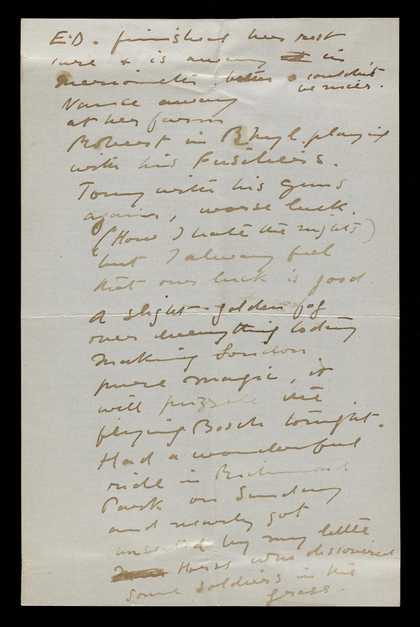 E.D. finished her rest
cure & is away in
Merioneth. better & couldn't
be nicer.
Nance away
at her farm
Robert in Rhyl. playing
with his Fusiliers.
Tony with his guns
again, worse luck.
(How I hate the nights)
but I always feel
that our luck is good
A slight golden fog
over everything today
making London
pure magic, it
will puzzle the
flying Bosch tonight.
Had a wonderful
ride in Richmond
Park on Sunday
and nearly got
unseated by my little
Horse who discovered
some soldiers in the
grass.